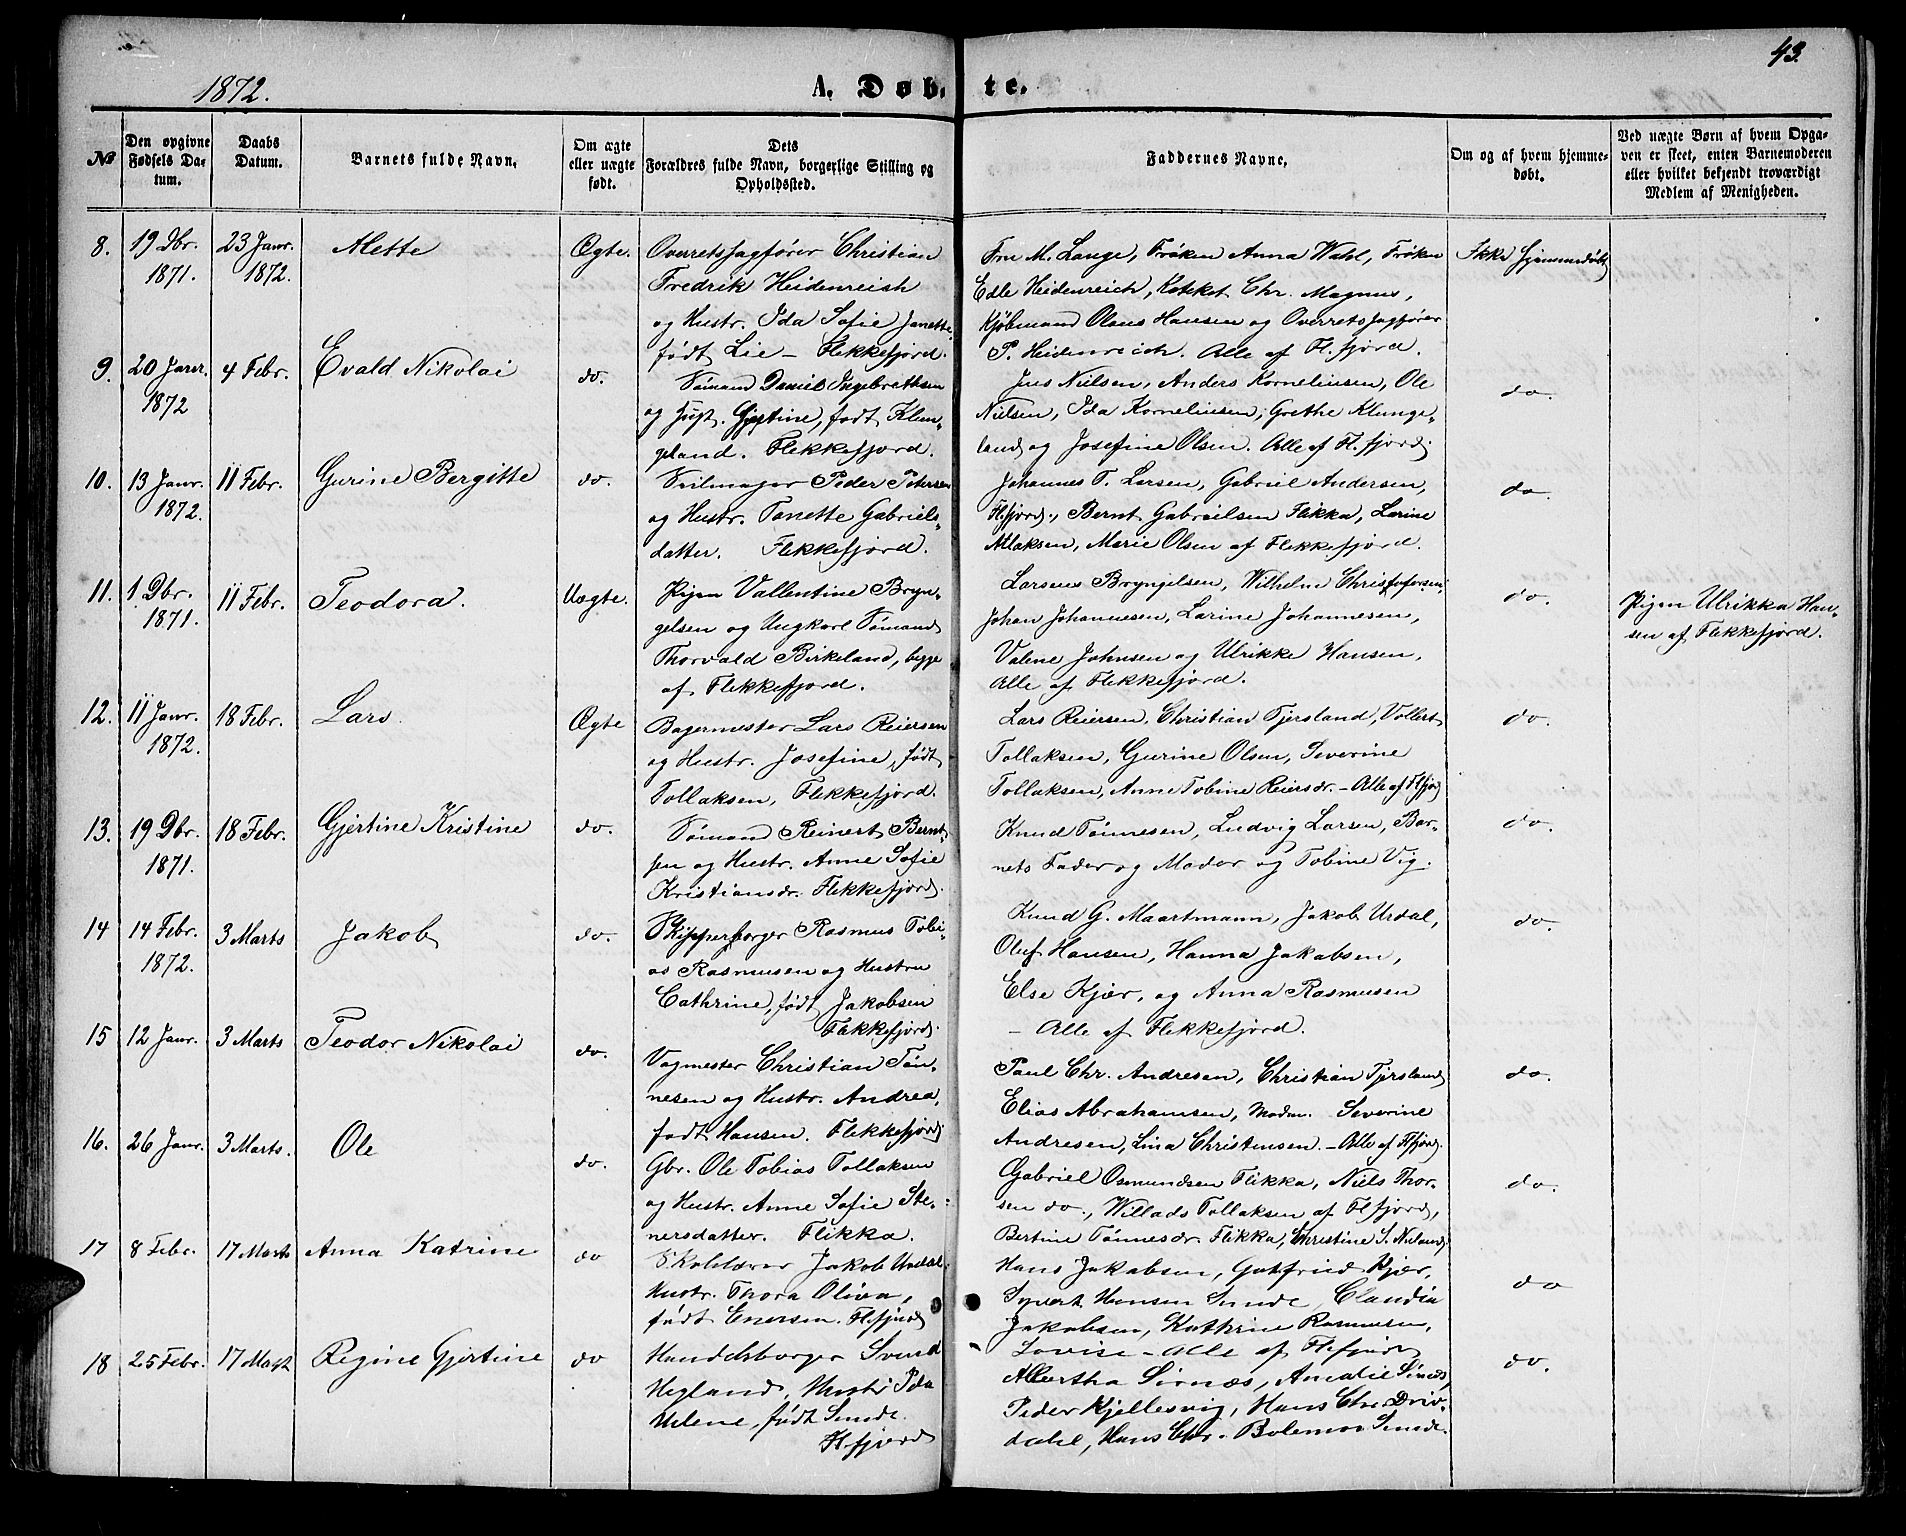 43.
1872.
A. Døb- te.
No
Den opgivne Fødsels Datum.
Daabs Datum.
Barnets fulde Navn.
Om ægte eller uægte født.
Dets Forældres fulde Navn, borgerlige Stilling og Opholdssted.
Faddernes Navne.
Om og af hvem hjemmedøbt.
Ved uægte Børn af hvem Opgaven er skeet, enten Barnemoderen eller hvilket bekjendt troværdigt Medlem af Menigheden.
8. 19 Dbr. 1871. 23 Janr. 1872. Alette Ægte.
Overretssagfører Christian
Fredrik Heidenreich
og Hustr. Ida Sofie Janette
født Lie - Flekkefjord.
Fru M. Lange, Frøken Anna Wahl, Frøken
Edle Heidenreich, Chr. Magnus,
Kjøbmand Olaus Hansen og Overretssagfører
P. Heidenreich. Alle af Fl.fjord.
Ikke hjemmedøbt
9. 20 Janr. 1872 4 Febr. Evald Nikolai do.
Sømand Daniel Ingebrethsen
og Hust. Gjertine, født Klun-
geland. Flekkefjord.
Jens Nielsen, Anders Korneliusen, Ole
Nielsen, Ida Korneliusen, Grethe Klunge-
land og Josefine Olsen. Alle af Fl.fjord.
do.
10. 13 Janr. 1872. 11 Febr. Gurine Bergitte do.
Seilmager Peder Petersen
og Hustr. Tonette Gabriels-
datter. Flekkefjord.
Johannes T. Larsen, Gabriel Andersen,
Fl.fjord., Bernt Gabrielsen Flikka, Larine
Atlaksen, Marie Olsen af Flekkefjord.
do.
11. 1 Dbr. 1871. 11 Febr. Teodora. Uægte.
Pigen Vallentine Bryn-
gelsen og Ungkarl Sømand
Thorvald Birkeland, begge
af Flekkefjord.
Larsens Bryngelsen, Wilhelm Christofersen,
Johan Johannesen, Larine Johannesen,
Valene Johnsen og Ulrikke Hansen,
Alle af Flekkefjord.
do.
Pigen Ulrikka Han-
sen af Flekkefjord.
12. 11 Janr. 1872. 18 Febr. Lars. Ægte
Bagermester Lars Reiersen
og Hustr. Josefine, født
Tollaksen, Flekkefjord.
Lars Reiersen, Christian Fjersland, Vollert
Tollaksen, Gurine Olsen, Severine
Tollaksen, Anne Tobine Reiersdr. - Alle af Flfjord
do.
13. 19 Dbr. 1871. 18 Febr. Gjertine Kristine do.
Sømand Reinert Bernt-
sen og Hustr. Anne Sofie
Kristiansdr. Flekkefjord.
Knud Tønnesen, Ludvig Larsen, Bar-
nets Fader og Moder og Tobine Vig.
do.
14 14 Febr. 1872. 3 Marts Jakob do.
Skipperborger Rasmus Tobi-
as Rasmusen og Hustru
Cathrine, født Jakobsen
Flekkefjord.
Knud G. Maartmann, Jakob Urdal,
Oluf Hansen, Hanna Jakobsen,
Else Kjær, og Anna Rasmusen
- Alle af Flekkefjord.
do.
15 12 Janr. 3 Marts Teodor Nikolai do.
Vagmester Christian Tøn-
nesen og Hustr. Andrea,
født Hansen. Flekkefjord.
Paul Chr. Andresen, Christian Fjersland
Elias Abrahamsen, Madm. Severine
Andresen, Lina Christensen. - Alle af Flfjord.
do.
16. 26 Janr. 3 Marts. Ole do.
Gbr. Ole Tobias Tollaksen
og Hustr. Anne Sofie Ste-
nersdatter. Flikka.
Gabriel Osmundsen Flikka, Niels Thor-
sen do., Willads Tollaksen af Flfjord,
Bertine Tønnesdr. Flikka, Christine S. Nuland.
do.
17 8 Febr. 17 Marts Anna Katrine do
Skolelærer Jakob Urdal.
Hustr. Thora Oliva,
født Enersen. Flfjord
Hans Jakobsen, Gotfried Kjær,
Syvert Hansen Sunde, Claudia
Jakobsen, Kathrine Rasmusen,
Lovise - Alle af Flfjord
do
18 25 Febr. 17 Marts Regine Gjertine do
Handelsborger Svend
Hegland, Hustr. Ida
Helene, født Sunde.
Flfjord
Albertha Sirnæs, Amalie Sunde,
Peder Kjellesvig, Hans Chr. Driv-
dahl, Hans Chr. Sunde.
do.